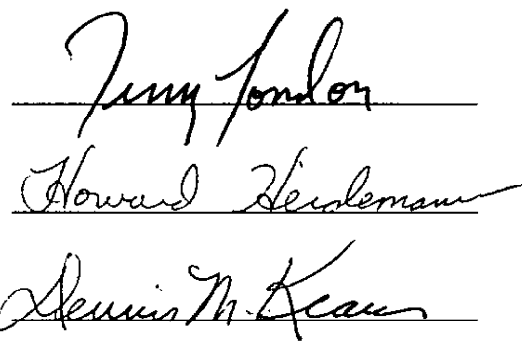 Terry London
Howard Heidemann
Dennis M. Kearns